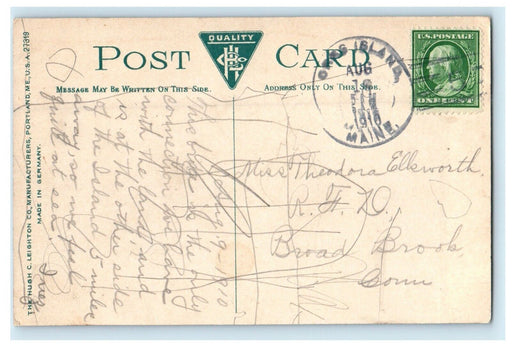 POST CARD
QUALITY
MESSAGE MAY BE WRITTEN ON THIS SIDE.
ADDRESS ONLY ON THIS SIDE.
ISLAND,
AUG
1910
MAINE.
U.S. POSTAGE
ONE CENT
THE HUGH C. LEIGHTON CO., MANUFACTURERS, PORTLAND, ME., U.S.A. 27319
MADE IN GERMANY.
Aug 9, 1910
This bridge is the only
connection we have
with the land, and
is at the other side
of the Island 5 miles
away, so we feel
quite at sea.
Miss Theodora Ellsworth
R. F. D.
Broad Brook
Conn